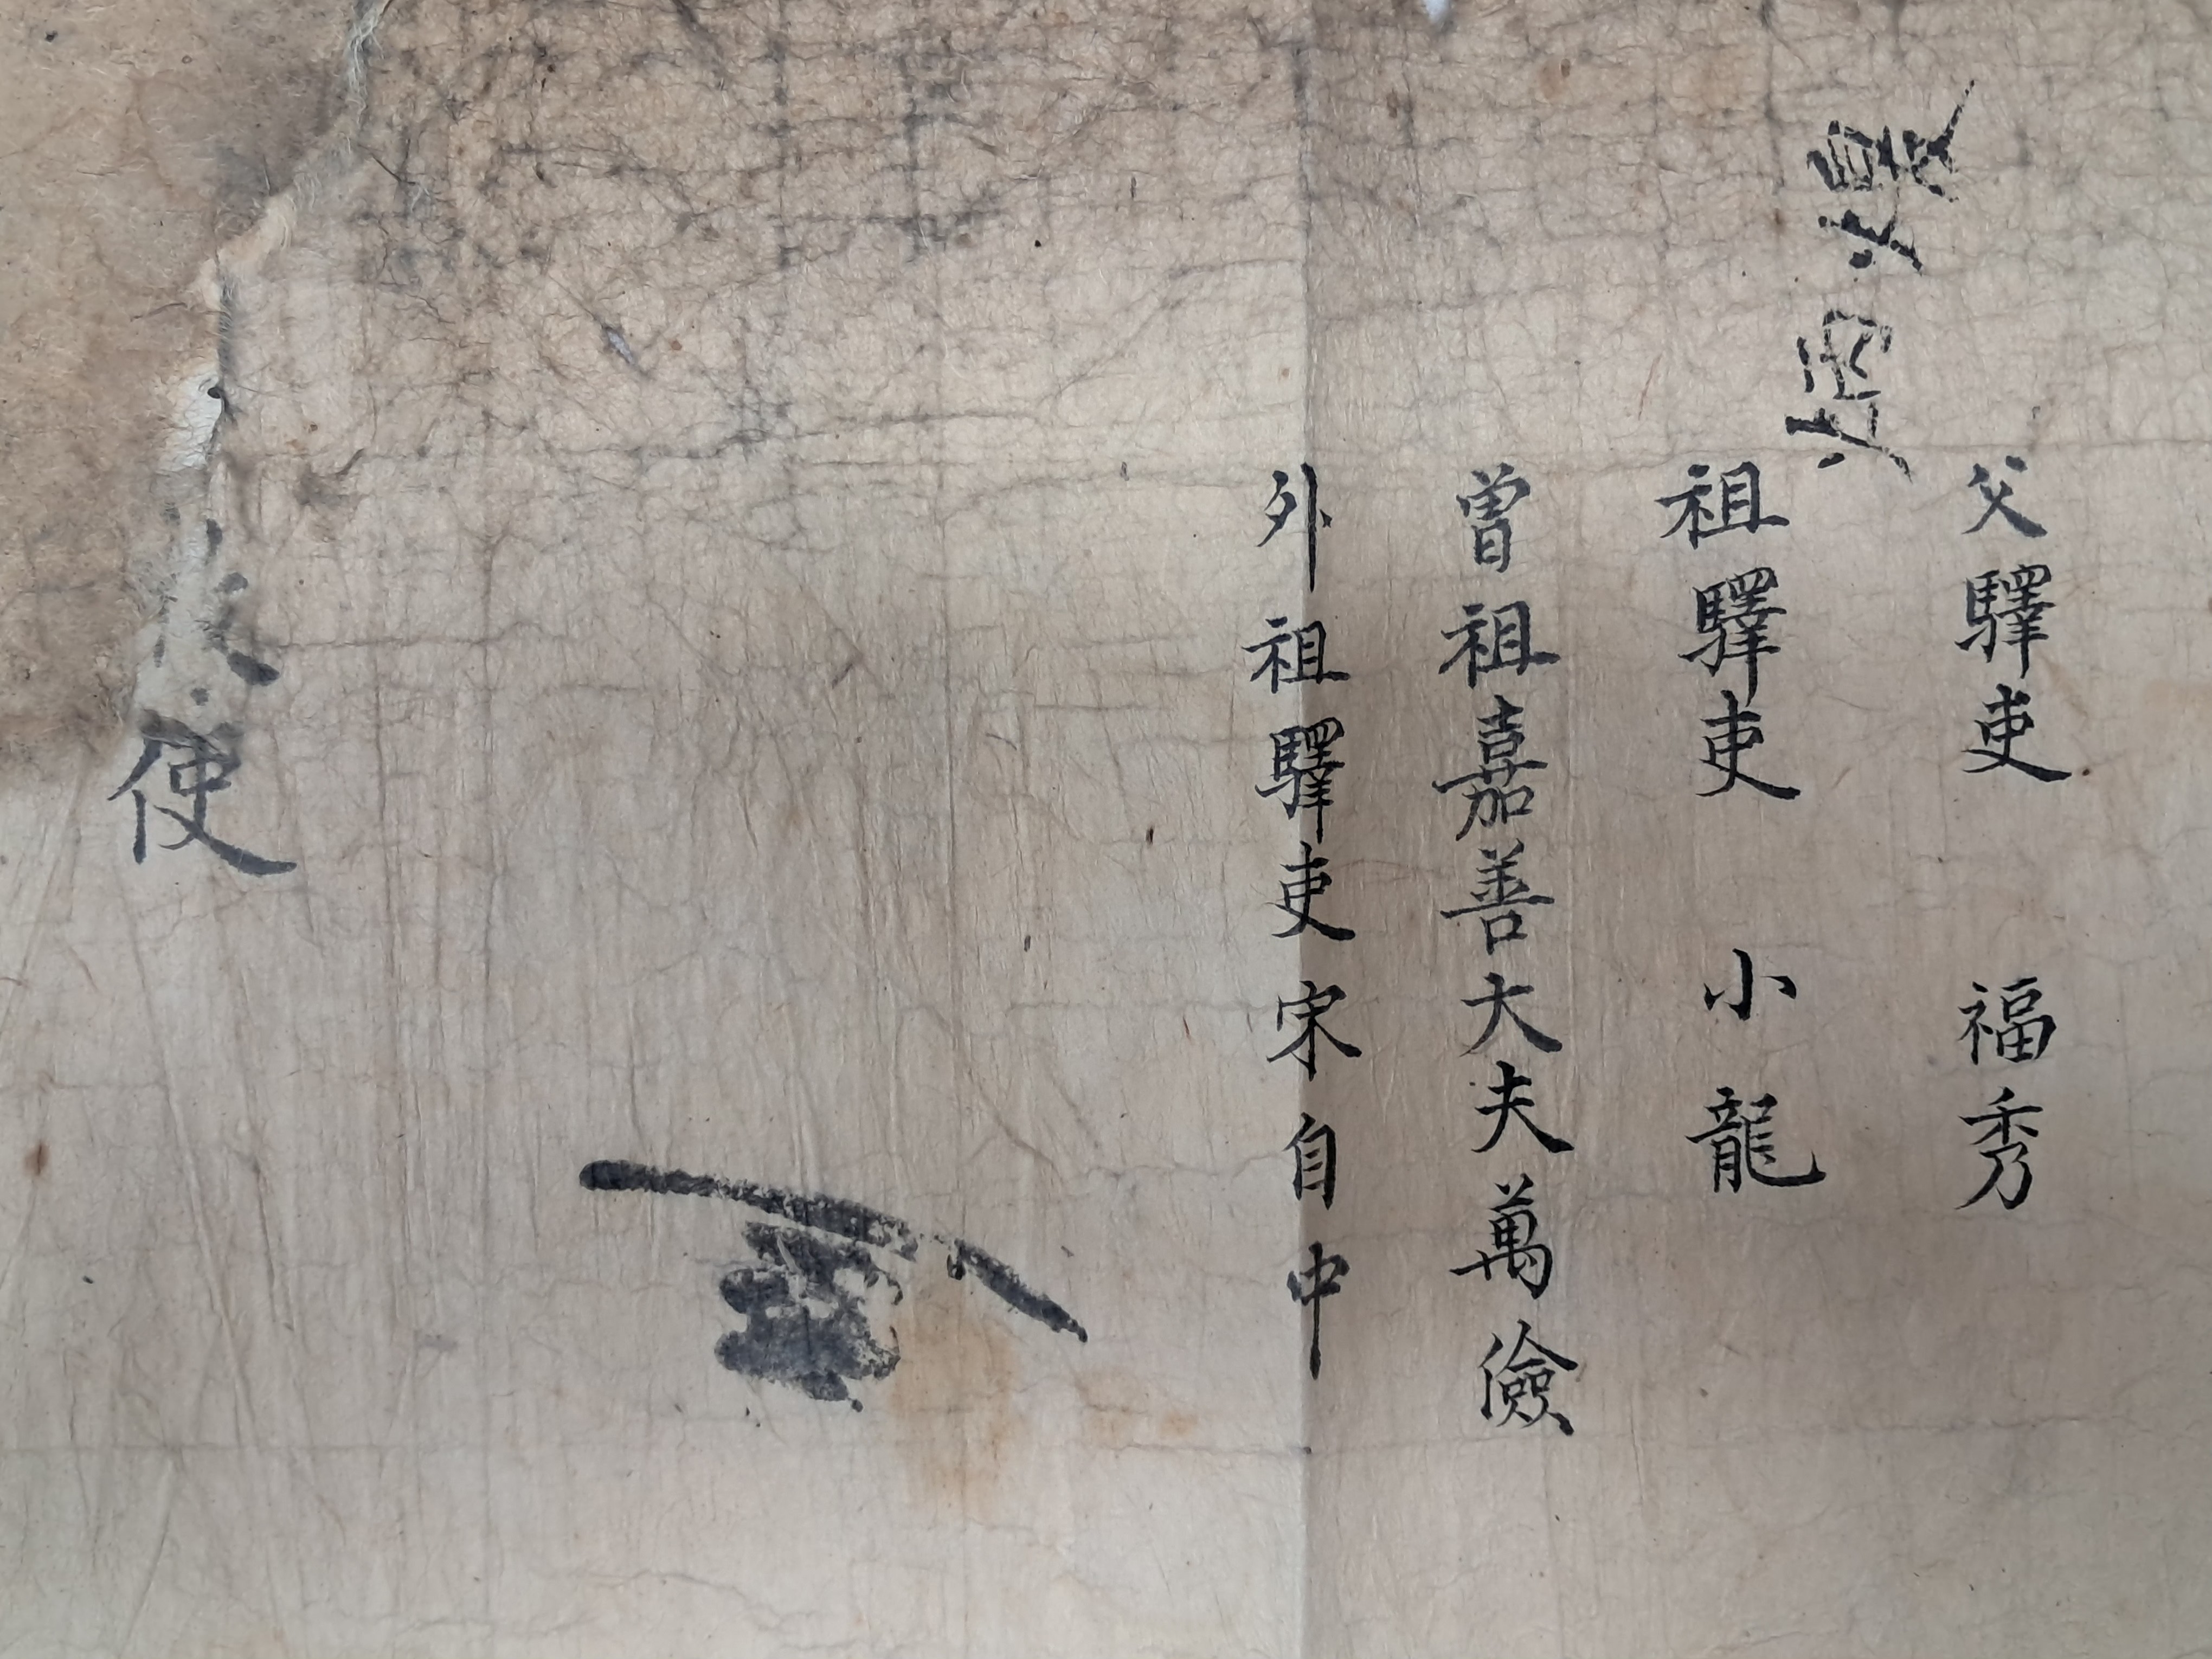 父驛吏 福秀
祖驛吏 小龍
曾祖嘉善大夫萬儉
外祖驛吏宋自中
使